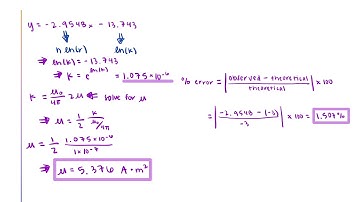 y = -2.9548x - 13.743
n ln(r)
ln(k)
⇒ ln(k) = -13.743
⇒ k = e^ln(k) = 1.075×10⁻⁶
k = μ₀/4π 2μ ⇒ solve for μ
⇒ μ = 1/2 k/(μ₀/4π)
μ = 1/2 1.075×10⁻⁶/1×10⁻⁷
⇒ μ = 5.376 A·m²
% error = |observed - theoretical/theoretical| × 100
= |-2.9548 - (-3)/-3| × 100 = 1.507%